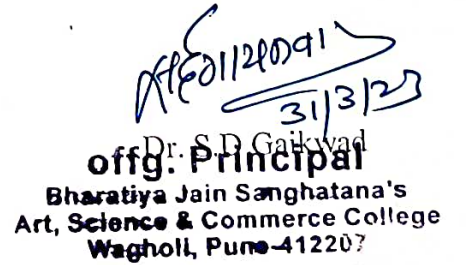 31/3/23
Dr. S.D Gaikwad
offg. Principal
Bharatiya Jain Sanghatana's
Art, Science & Commerce College
Wagholi, Pune-412207